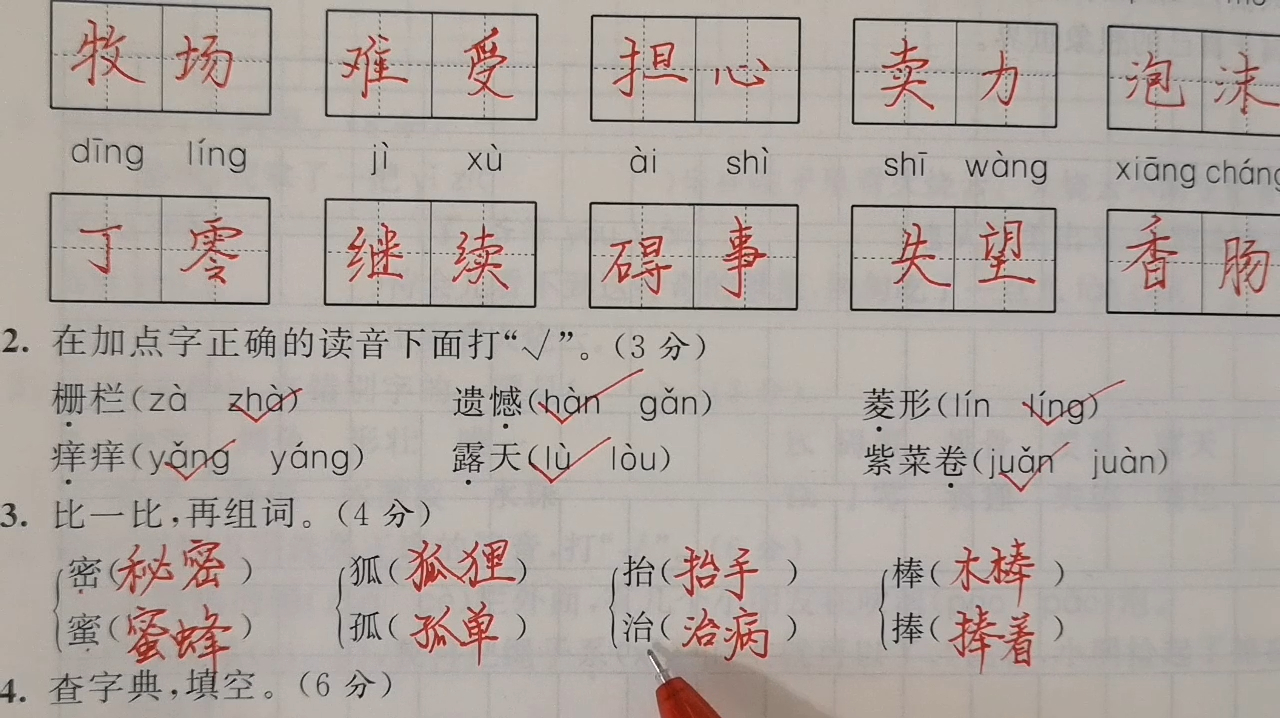 牧场 难受 担心 卖力 泡沫
dīng líng jì xù ài shì shī wàng xiāng cháng
丁零 继续 碍事 失望 香肠
2. 在加点字正确的读音下面打“√”。(3 分)
栅栏(zà zhà) 遗憾(hàn gǎn) 菱形(lín líng)
痒痒(yǎng yáng) 露天(lù lòu) 紫菜卷(juǎn juàn)
3. 比一比,再组词。(4 分)
密(秘密) 狐(狐狸) 抬(抬手) 棒(木棒)
蜜(蜜蜂) 孤(孤单) 治(治病) 捧(捧着)
4. 查字典,填空。(6 分)